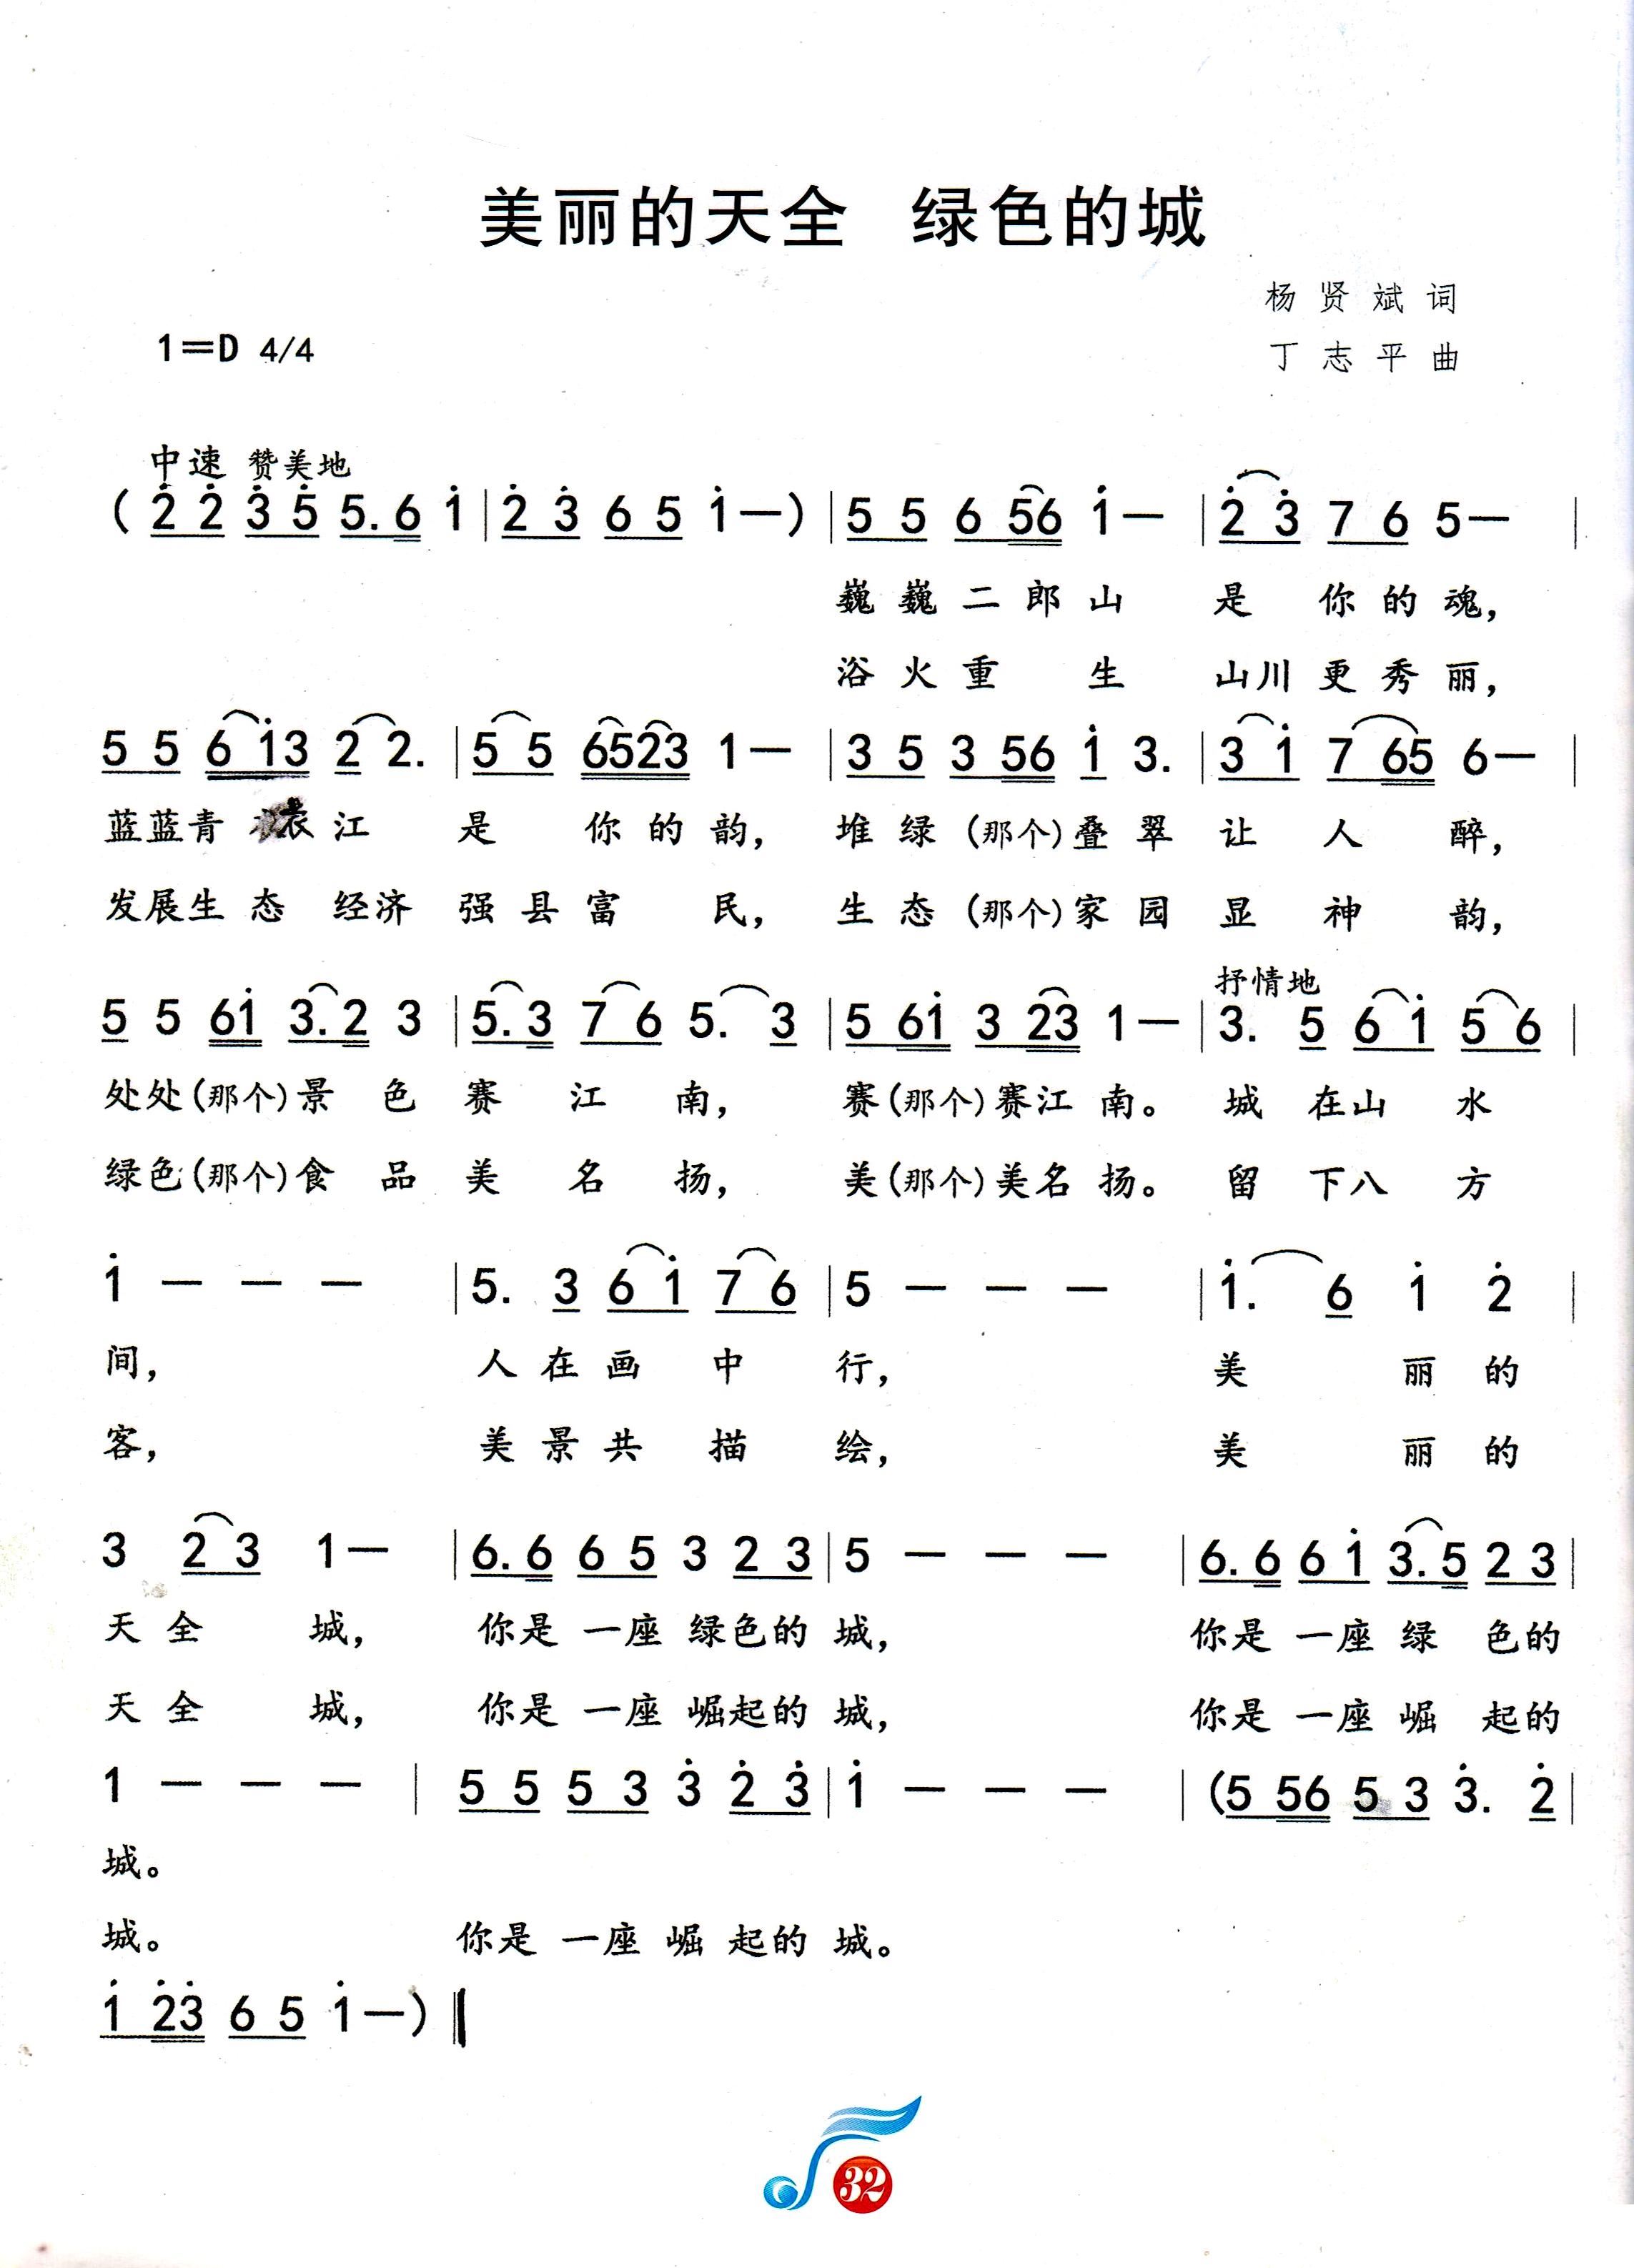 美丽的天全 绿色的城
杨贤斌词
1=D 4/4
丁志平曲
中速 赞美地
( 2̇ 2̇ 3̇ 5̇ 5. 6 1̇ | 2̇ 3̇ 6 5 1̇ — ) | 5 5 6 56 1̇ — | 2̇ 3̇ 7 6 5 — |
巍巍二郎山 是 你的魂,
浴火重 生 山川更秀丽,
5 5 6 1̇3 2 2. | 5 5 6523 1 — | 3 5 3 56 1̇ 3. | 3 1̇ 7 65 6 — |
蓝蓝青衣江 是 你的韵, 堆绿(那个)叠翠 让 人 醉,
发展生态 经济 强县富 民, 生态(那个)家园 显 神 韵,
抒情地
5 5 61̇ 3. 2 3 | 5. 3 7 6 5. 3 | 5 61̇ 3 23 1 — | 3. 5 6 1̇ 5 6 |
处处(那个)景 色 赛 江 南, 赛(那个)赛江南。 城 在山 水
绿色(那个)食 品 美 名 扬, 美(那个)美名扬。 留 下八 方
1̇ — — — | 5. 3 6 1̇ 7 6 | 5 — — — | 1̇. 6 1̇ 2̇ |
间, 人在画 中 行, 美 丽的
客, 美景共 描 绘, 美 丽的
3 2 3 1 — | 6. 6 6 5 3 2 3 | 5 — — — | 6. 6 6 1̇ 3. 5 2 3 |
天全 城, 你是 一座 绿色的 城, 你是 一座 绿 色的
天全 城, 你是 一座 崛起的 城, 你是 一座 崛 起的
1 — — — | 5 5 5 3 3̇ 2̇ 3̇ | 1̇ — — — | (5 56 5 3 3̇. 2̇ |
城。
城。 你是 一座 崛 起的 城。
1̇ 2̇3̇ 6 5 1̇ — ) ‖
32